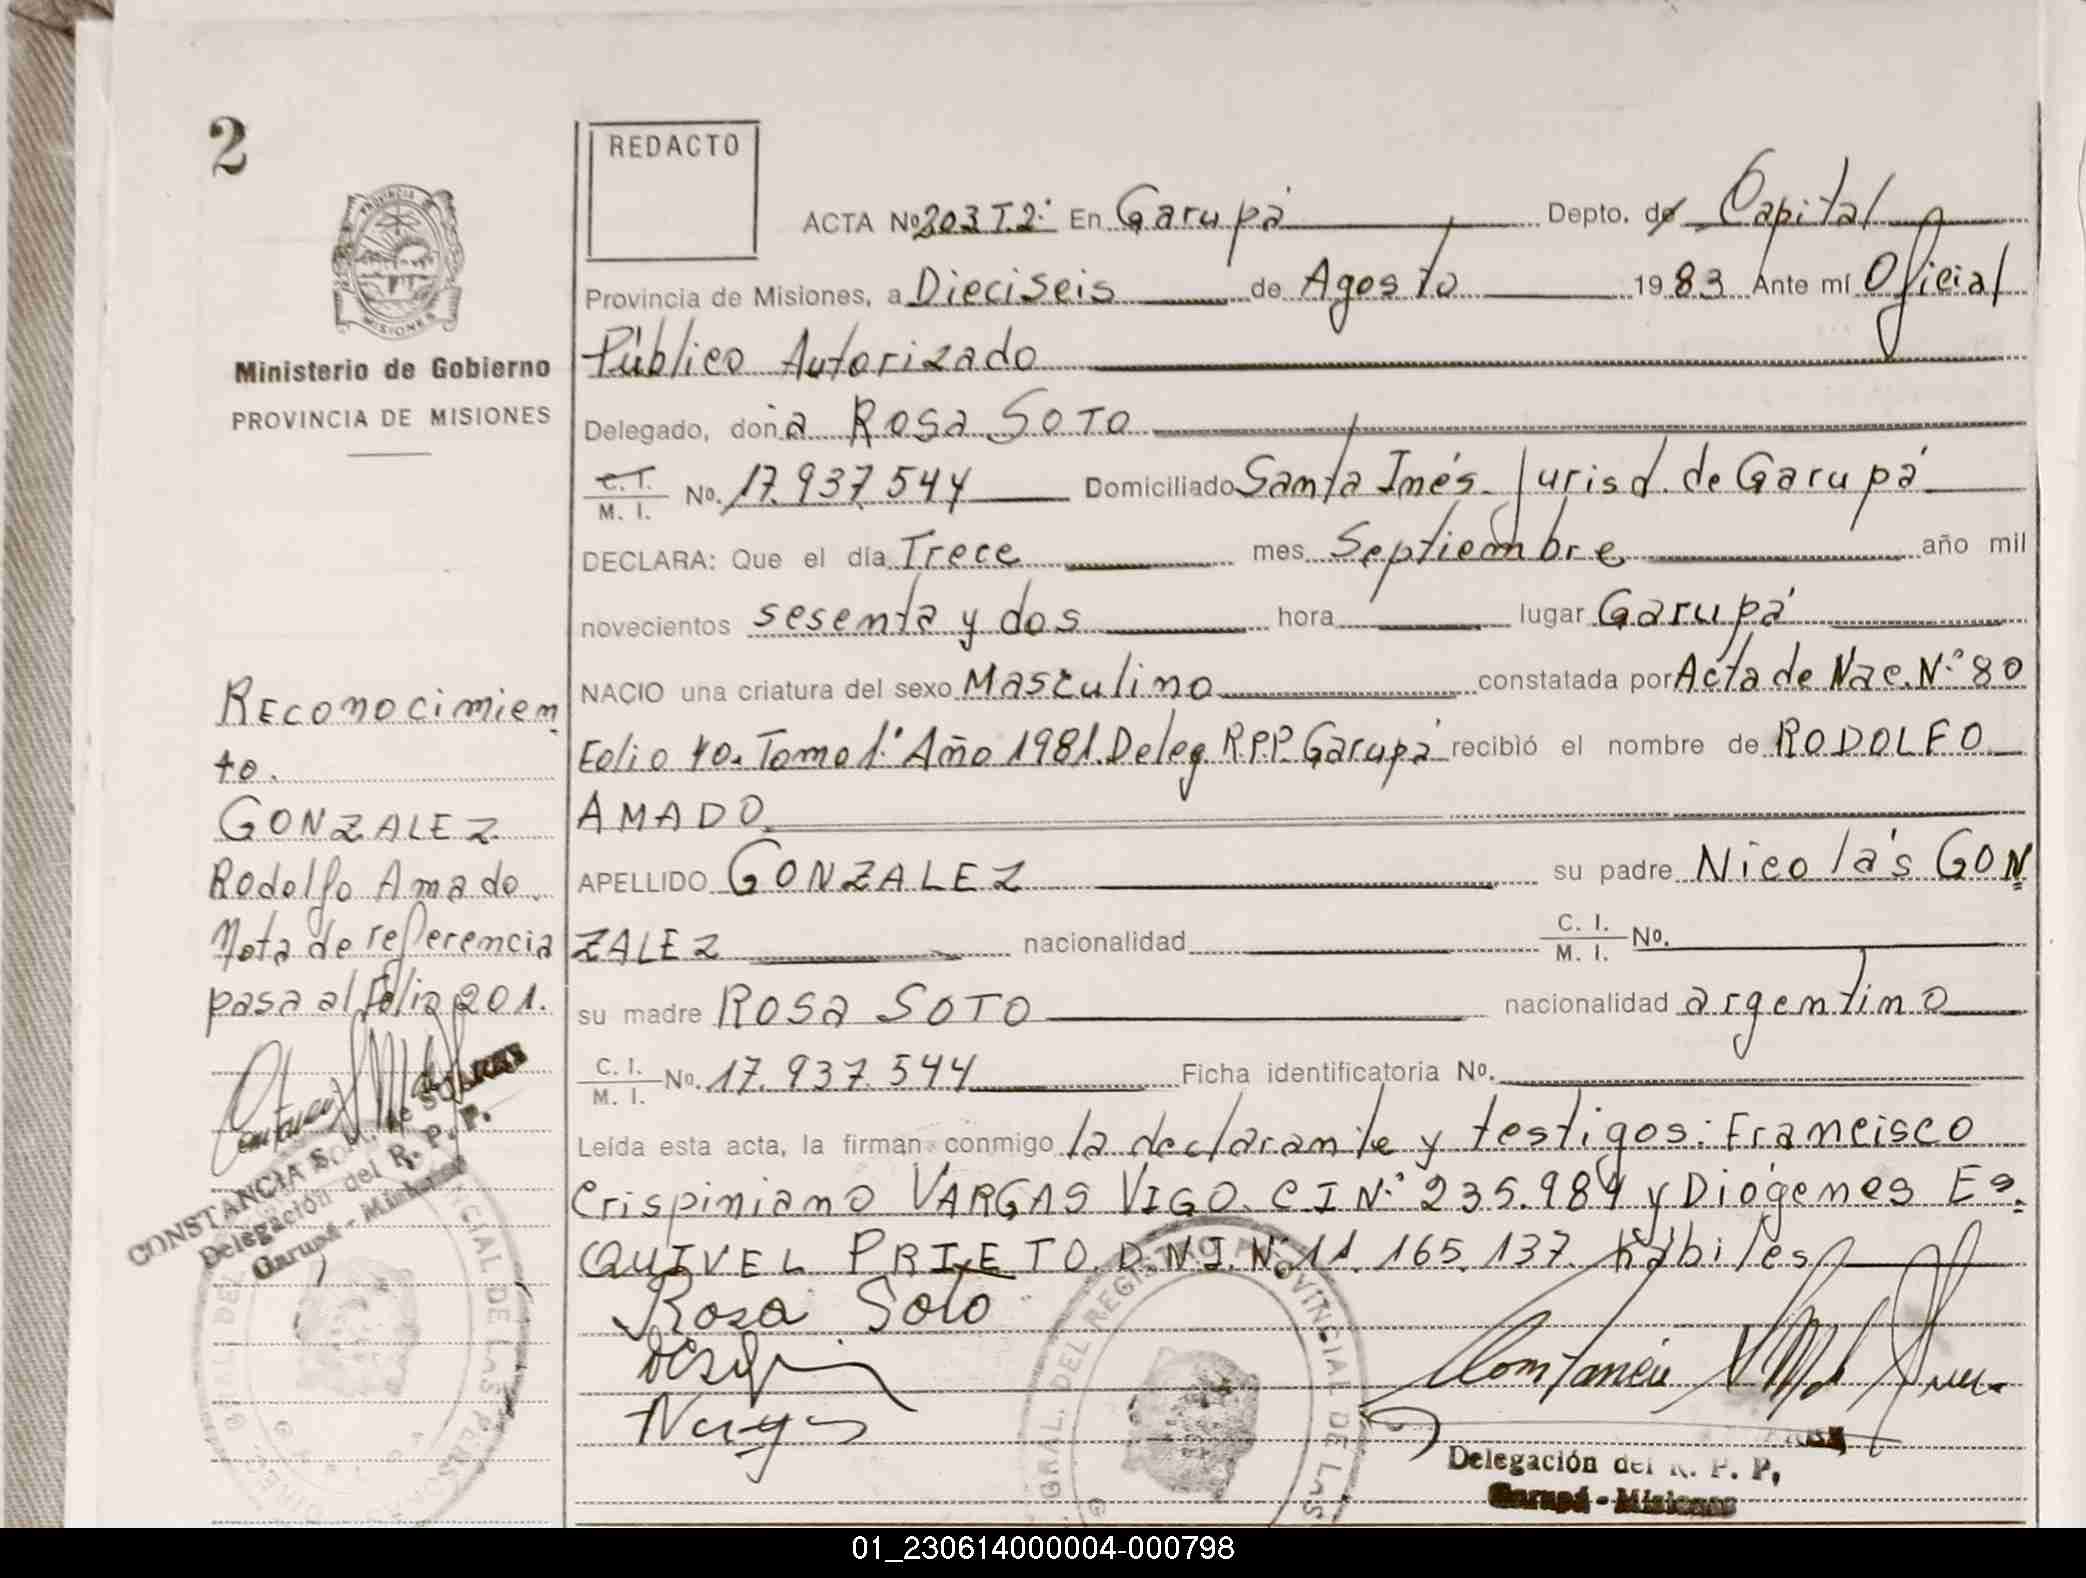 2
PROVINCIA DE
MISIONES
Ministerio de Gobierno
PROVINCIA DE MISIONES
Reconocimien
to.
GONZALEZ
Rodolfo Amado.
Nota de referencia
pasa al folio 201.
CONSTANCIA S. M. de SUAREZ
Delegación del R. P. P.
Garupá - Misiones
REDACTO
ACTA Nº 203 T.2º En Garupá Depto. de Capital
Provincia de Misiones, a Dieciseis de Agosto 1983 Ante mí Oficial
Público Autorizado
Delegado, doña Rosa SOTO
C. I. / M. I. No. 17.937.544 Domiciliado Santa Inés. Jurisd. de Garupá
DECLARA: Que el día Trece mes Septiembre año mil
novecientos sesenta y dos hora lugar Garupá
NACIO una criatura del sexo Masculino constatada por Acta de Nac. Nº 80
Folio 40. Tomo 1º Año 1981. Deleg. R.P.P. Garupá recibió el nombre de RODOLFO
AMADO
APELLIDO GONZALEZ su padre Nicolás GON
ZALEZ nacionalidad C. I. / M. I. Nº.
su madre Rosa SOTO nacionalidad argentino
C. I. / M. I. No. 17.937.544 Ficha identificatoria Nº.
Leída esta acta, la firman conmigo la declarante y testigos: Francisco
Crispiniano VARGAS VIGO. C.I Nº 235.984 y Diógenes Es
QUIVEL PRIETO. D.N.I. Nº 11.165.137. hábiles
Rosa Soto
GRAL. DEL REGISTRO PROVINCIAL DE LAS
Delegación del R. P. P.
Garupá - Misiones
01_230614000004-000798